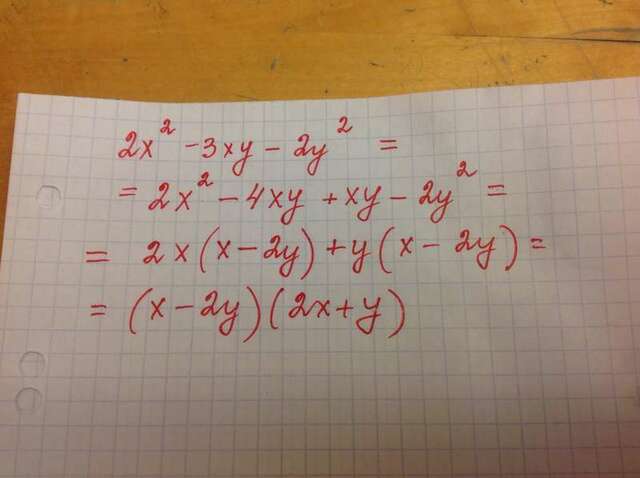 2x² - 3xy - 2y² =
= 2x² - 4xy + xy - 2y² =
= 2x(x - 2y) + y(x - 2y) =
= (x - 2y)(2x + y)